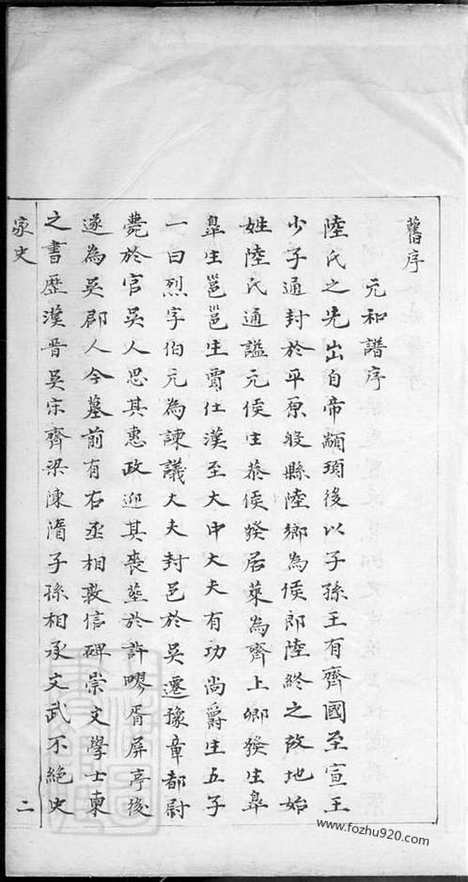 舊序
元和譜序
陸氏之先出自帝顓頊後以子孫王有齊國至宣王
少子通封於平原般縣陸鄉為侯郎陸終之故地始
姓陸氏通謚元侯生恭侯發居萊為齊上卿發生皐
皐生邕邕生賈仕漢至大中大夫有功尚爵生五子
一曰烈字伯元為諫議大夫封邑於吳遷豫章都尉
薨於官吳人思其惠政迎其喪塟於許㽮胥屏亭後
遂為吳郡人今墓前有右丞相敦信碑崇文學士柬
之書歷漢晉吳宋齊梁陳隋子孫相承文武不絕史
家史
二
www.fozhu920.com